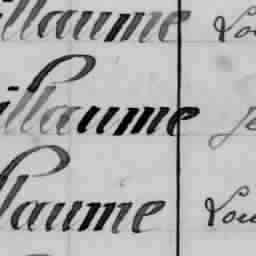 illaume Lou
illaume Je
llaume Lou